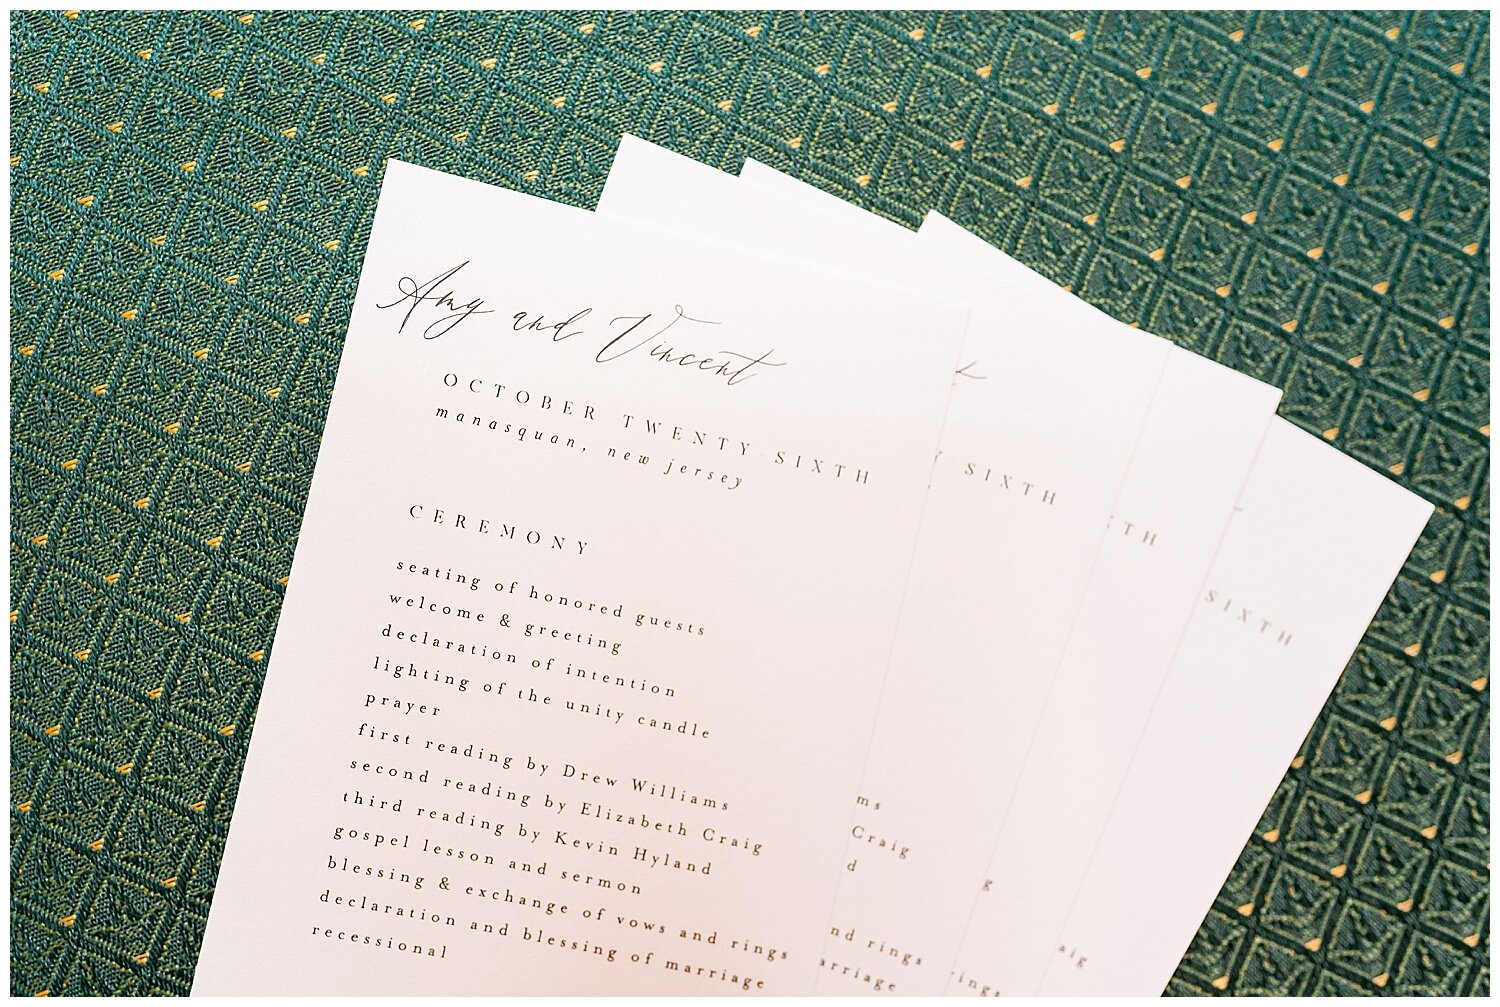 Amy and Vincent
OCTOBER TWENTY-SIXTH
manasquan, new jersey
CEREMONY
seating of honored guests
welcome & greeting
declaration of intention
lighting of the unity candle
prayer
first reading by Drew Williams
second reading by Elizabeth Craig
third reading by Kevin Hyland
gospel lesson and sermon
blessing & exchange of vows and rings
declaration and blessing of marriage
recessional
Y-SIXTH
ms
Craig
d
nd rings
arriage
TH
g
ings
SIXTH
aig